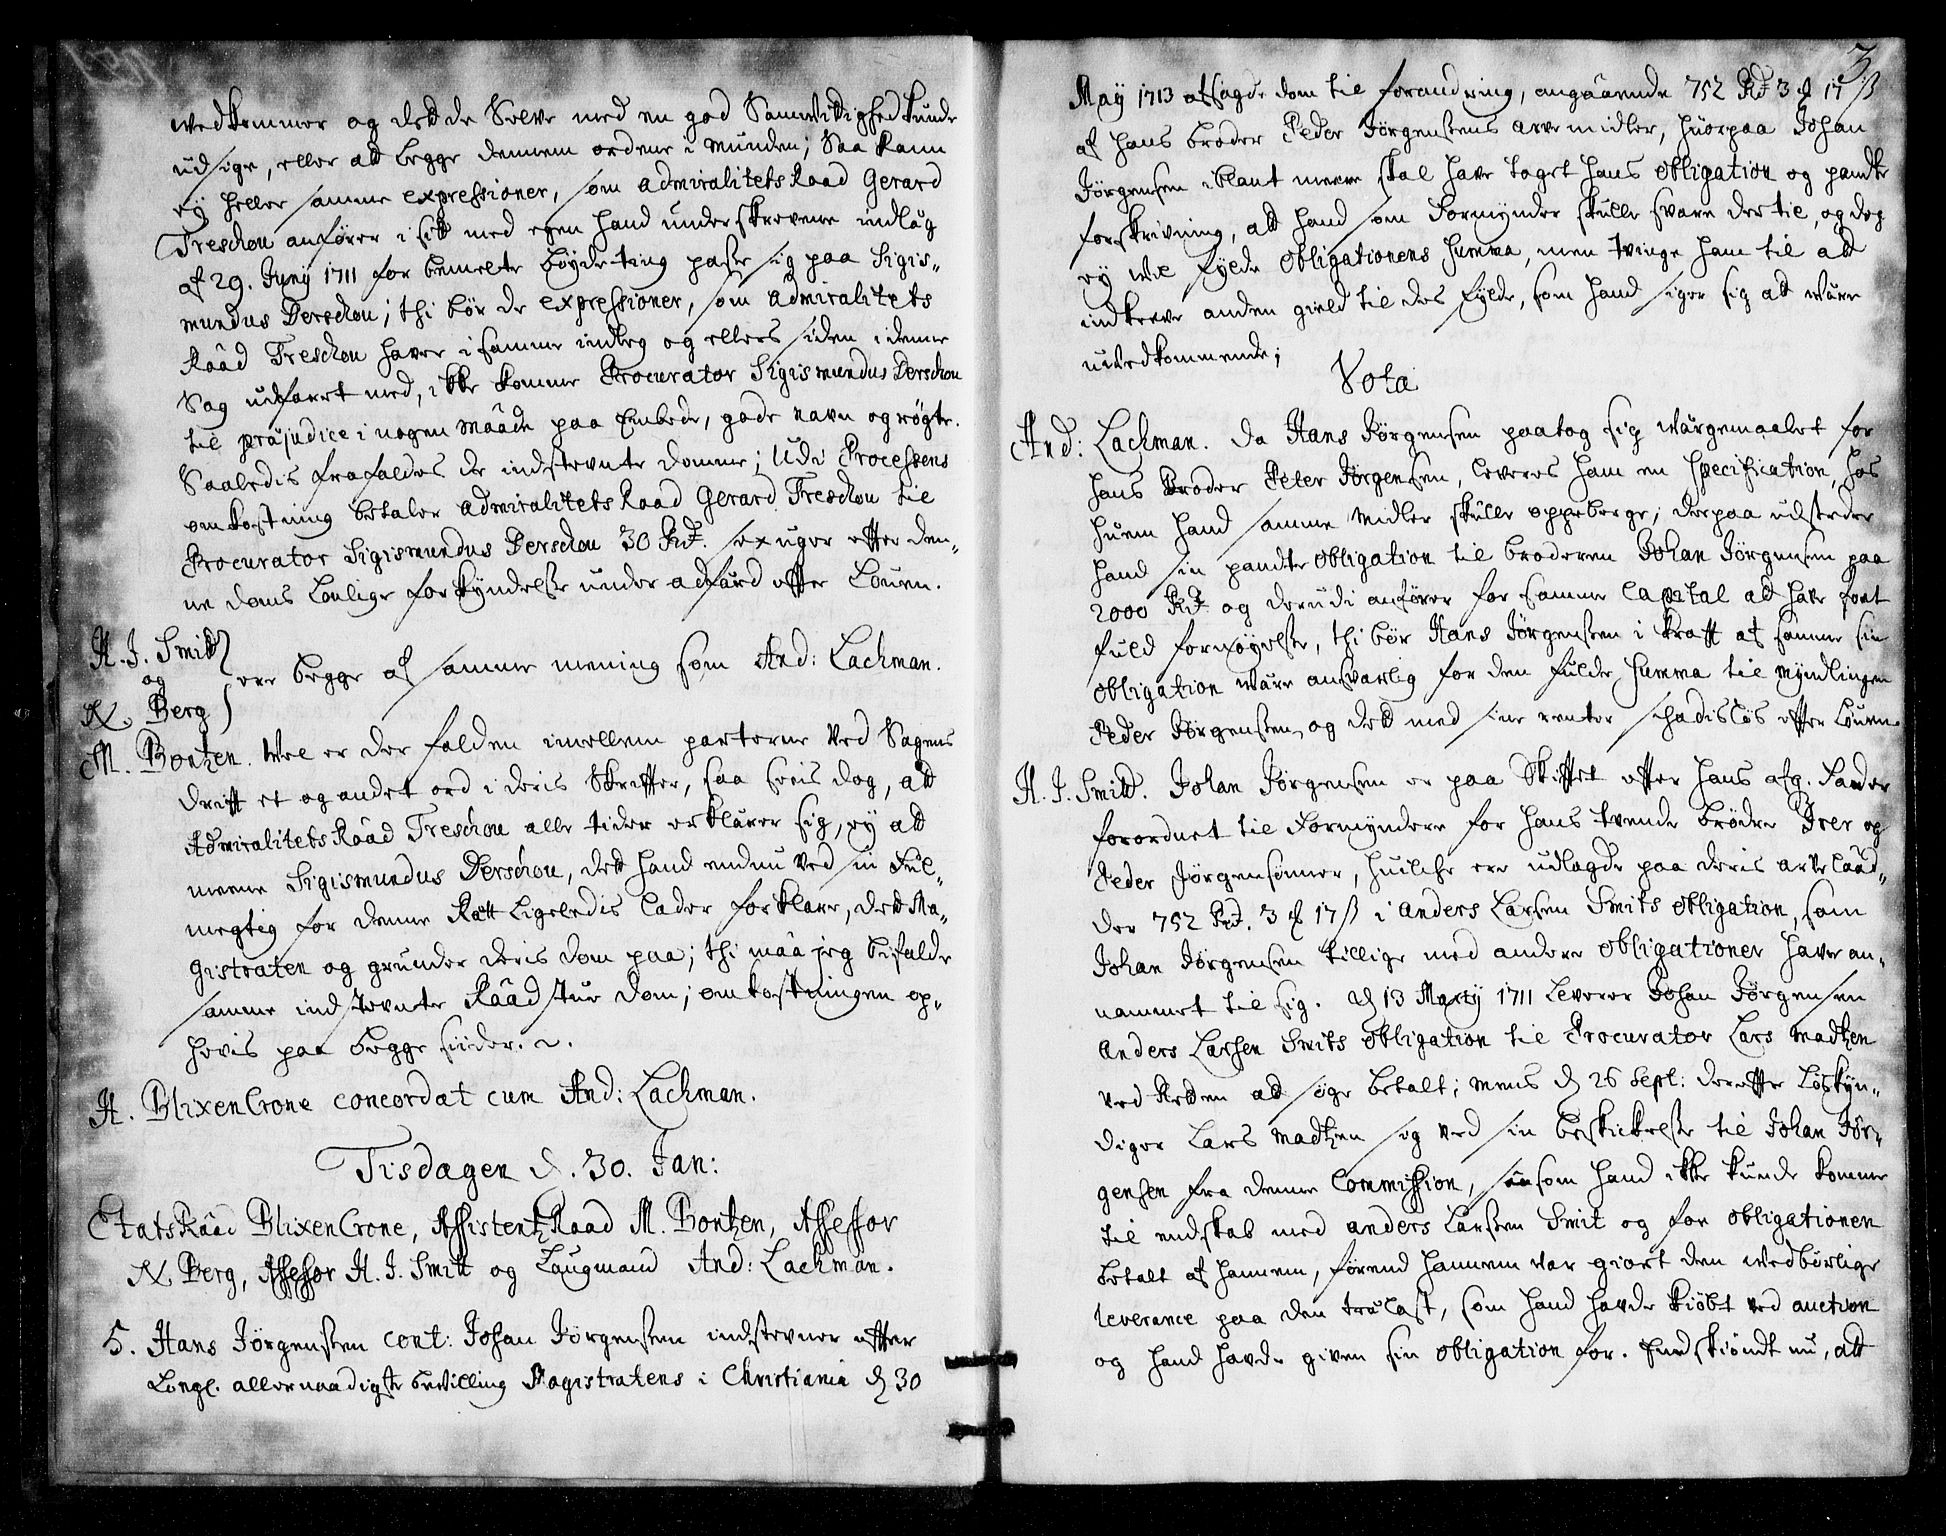 vedkommer og dette Selve med en god Samvittighed kunde
udsige, eller att legge dennem ordene i munden; Saa kann
ey heller samme expressioner, som admiralitets Raad Gerard
Treschou anfører i sitt med egen haand underskrevene indlæg
af 29. Juny 1711 for bemelte bøyde ting passe sig paa Sigis„
mundus Derschou; thi bør de expressioner, som admiralitets
Raad Treschou haver i samme indleg og ellers siden i denne
Sag udfaret med, ikke komme Procurator Sigismundus Derschou
til præjudice i nogen maade paa Embede, gode navn og røgte.
Saaledis frafaldes de indstevnte domme; Udi Processens
omkostning betaler admiralitets Raad Gerard Treschou til
Procurator Sigismundus Derschou 30 Rd. sex uger effter den„
ne doms Lovlige forkyndelse under adfærd effter Loven.
H. J. Smidt
og
N. Berg
ere begge af samme mening som And: Lachman.
M. Bontzen. Vel er der falden imellem parterne ved Sagens
drifft et og andet ord i deris Skriffter, saa sees dog, att
Admiralitets Raad Treschou alle tider erklærer sig, ey att
meene Sigismundus Derschou, dett hand endnu ved sin Ful„
megtig for denne Rett Ligeledis lader forklare, dett Ma„
gistraten og grunder deris dom paa; thi maa jeg bifalde
samme indstevnte Raadstue dom; omkostningen op„
hevis paa begge siider.
H. BlixenCrone concordat cum And: Lachman.
Tisdagen d. 30. Jan:
Etats Raad BlixenCrone, Assistentz Raad M. Bontzen, Assessor
N. Berg, Assessor H. J. Smitt og Laugmand And: Lachman.
5. Hans Jörgensen cont: Johan Jörgensen indstevner effter
Kongl. allernaadigste bevilling Magistratens i Christiania d 30
3
May 1713 afsagde dom til forandring, angaaende 752 Rd 3 17 ß
af hans broder Peder Jörgensens arve midler, huorpaa Johan
Jörgensen iblant meere skal have taget hans obligation og pandte
forskrivning, att hand som Formynder skulle svare der til, og dog
ey vil fylde obligationens summa, men tvinge ham til att
indkreve anden gield til des fylde, som hand siger sig att være
uvedkommende;
Vota
And: Lachman. Da Hans Jörgensen paatog sig Værgemaalet for
hans Broder Peter Jörgensen, leveres ham en specification, hos
huem hand samme midler skulle oppeberge; derpaa udsteder
hand sin pandte obligation til broderen Johan Jörgensen paa
2000 Rd. og derudi anfører for samme Capital att have faat
fuld fornøyelse, thi bør Hans Jörgensen i krafft af samme sin
obligation være ansvarlig for den fulde summa til myndlingen
Peder Jörgensen, og dett med sine renter schadisløs effter Loven.
H. J. Smitt. Johan Jörgensen er paa Skifftet effter hans afg. Fader
forordnet til Formyndere for hans tvende brødre Iver og
Peder Jörgensønner, huilche ere udlagde paa deris arve laad„
der 752 Rd. 3 17 ß i Anders Larsen Smits obligation, som
Johan Jörgensen tillige med andere obligationer haver an„
nammet til sig. d 13 Marty 1711 Leverer Johan Jörgensen
Anders Larsen Smits obligation til Procurator Lars Madtzen
ved Retten att søge betalt; mens d 26 Sept: dereffter Loskyn„
diger Lars Madtzen sig ved sin beskickelse til Johan Jör„
gensen fra denne Commission, saasom hand ikke kunde komme
til endskab med Anders Larsen Smit og for obligationen
betalt af hannem, førend hannem var giort den vedbørlige
leverance paa den trælast, som hand havde kiøbt ved auction
og hand havde given sin obligation for. Endskiøndt nu, att